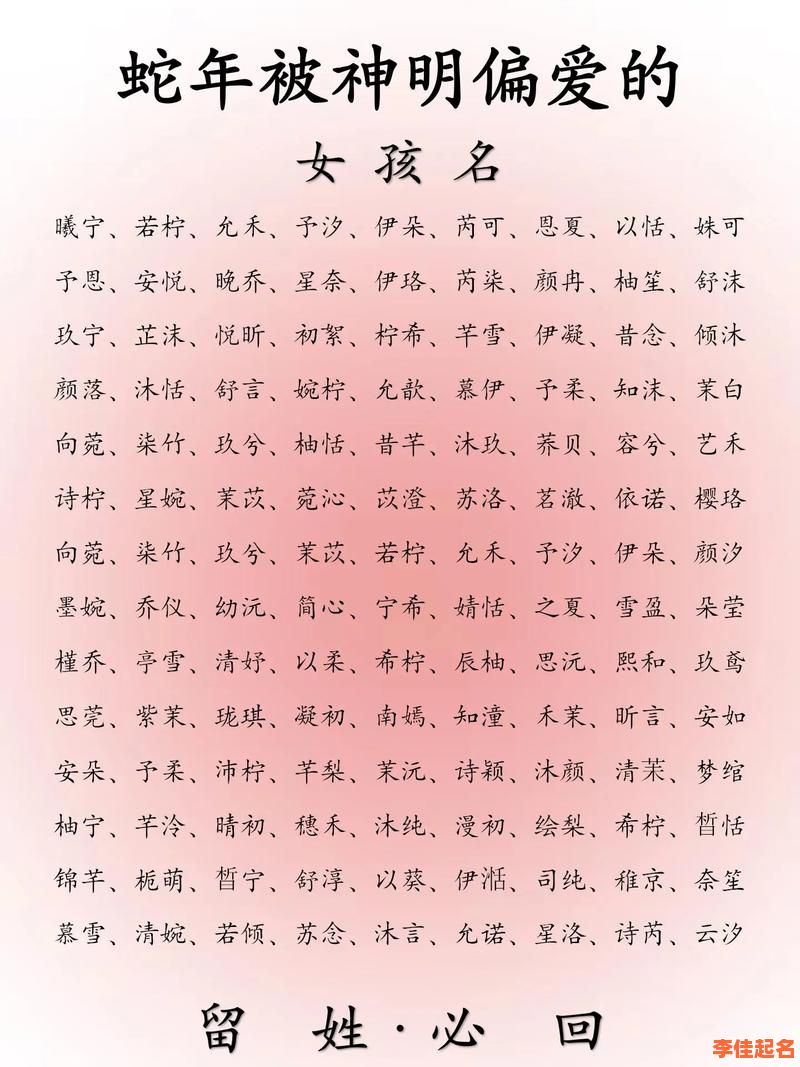 蛇年被神明偏爱的
女孩名
曦宁、若柠、允禾、予汐、伊朵、芮可、恩夏、以恬、姝可
予恩、安悦、晚乔、星奈、伊珞、芮柒、颜冉、柚笙、舒沫
玖宁、芷沫、悦昕、初絮、柠希、芊雪、伊凝、昔念、倾沐
颜落、沐恬、舒言、婉柠、允歆、慕伊、予柔、知沫、茉白
向菀、柒竹、玖兮、柚恬、昔芊、沐玖、荞贝、容兮、艺禾
诗柠、星婉、茉苡、菀沁、苡澄、苏洛、茗澈、依诺、樱珞
向菀、柒竹、玖兮、茉苡、若柠、允禾、予汐、伊朵、颜汐
墨婉、乔仪、幼沅、简心、宁希、婧恬、之夏、雪盈、朵莹
槿乔、亭雪、清妤、以柔、希柠、辰柚、思沅、熙和、玖鸢
思莞、紫茉、珑琪、凝初、南嫣、知潼、禾茉、昕言、安如
安朵、予柔、沛柠、芊梨、茉沅、诗颖、沐颜、清茉、梦绾
柚宁、芊泠、晴初、穗禾、沐纯、漫初、绘梨、希柠、皙恬
锦芊、栀萌、皙宁、舒淳、以葵、伊湉、司纯、稚京、奈笙
慕雪、清婉、若倾、苏念、沐言、允诺、星洛、诗芮、云汐
留姓·必回
李佳起名